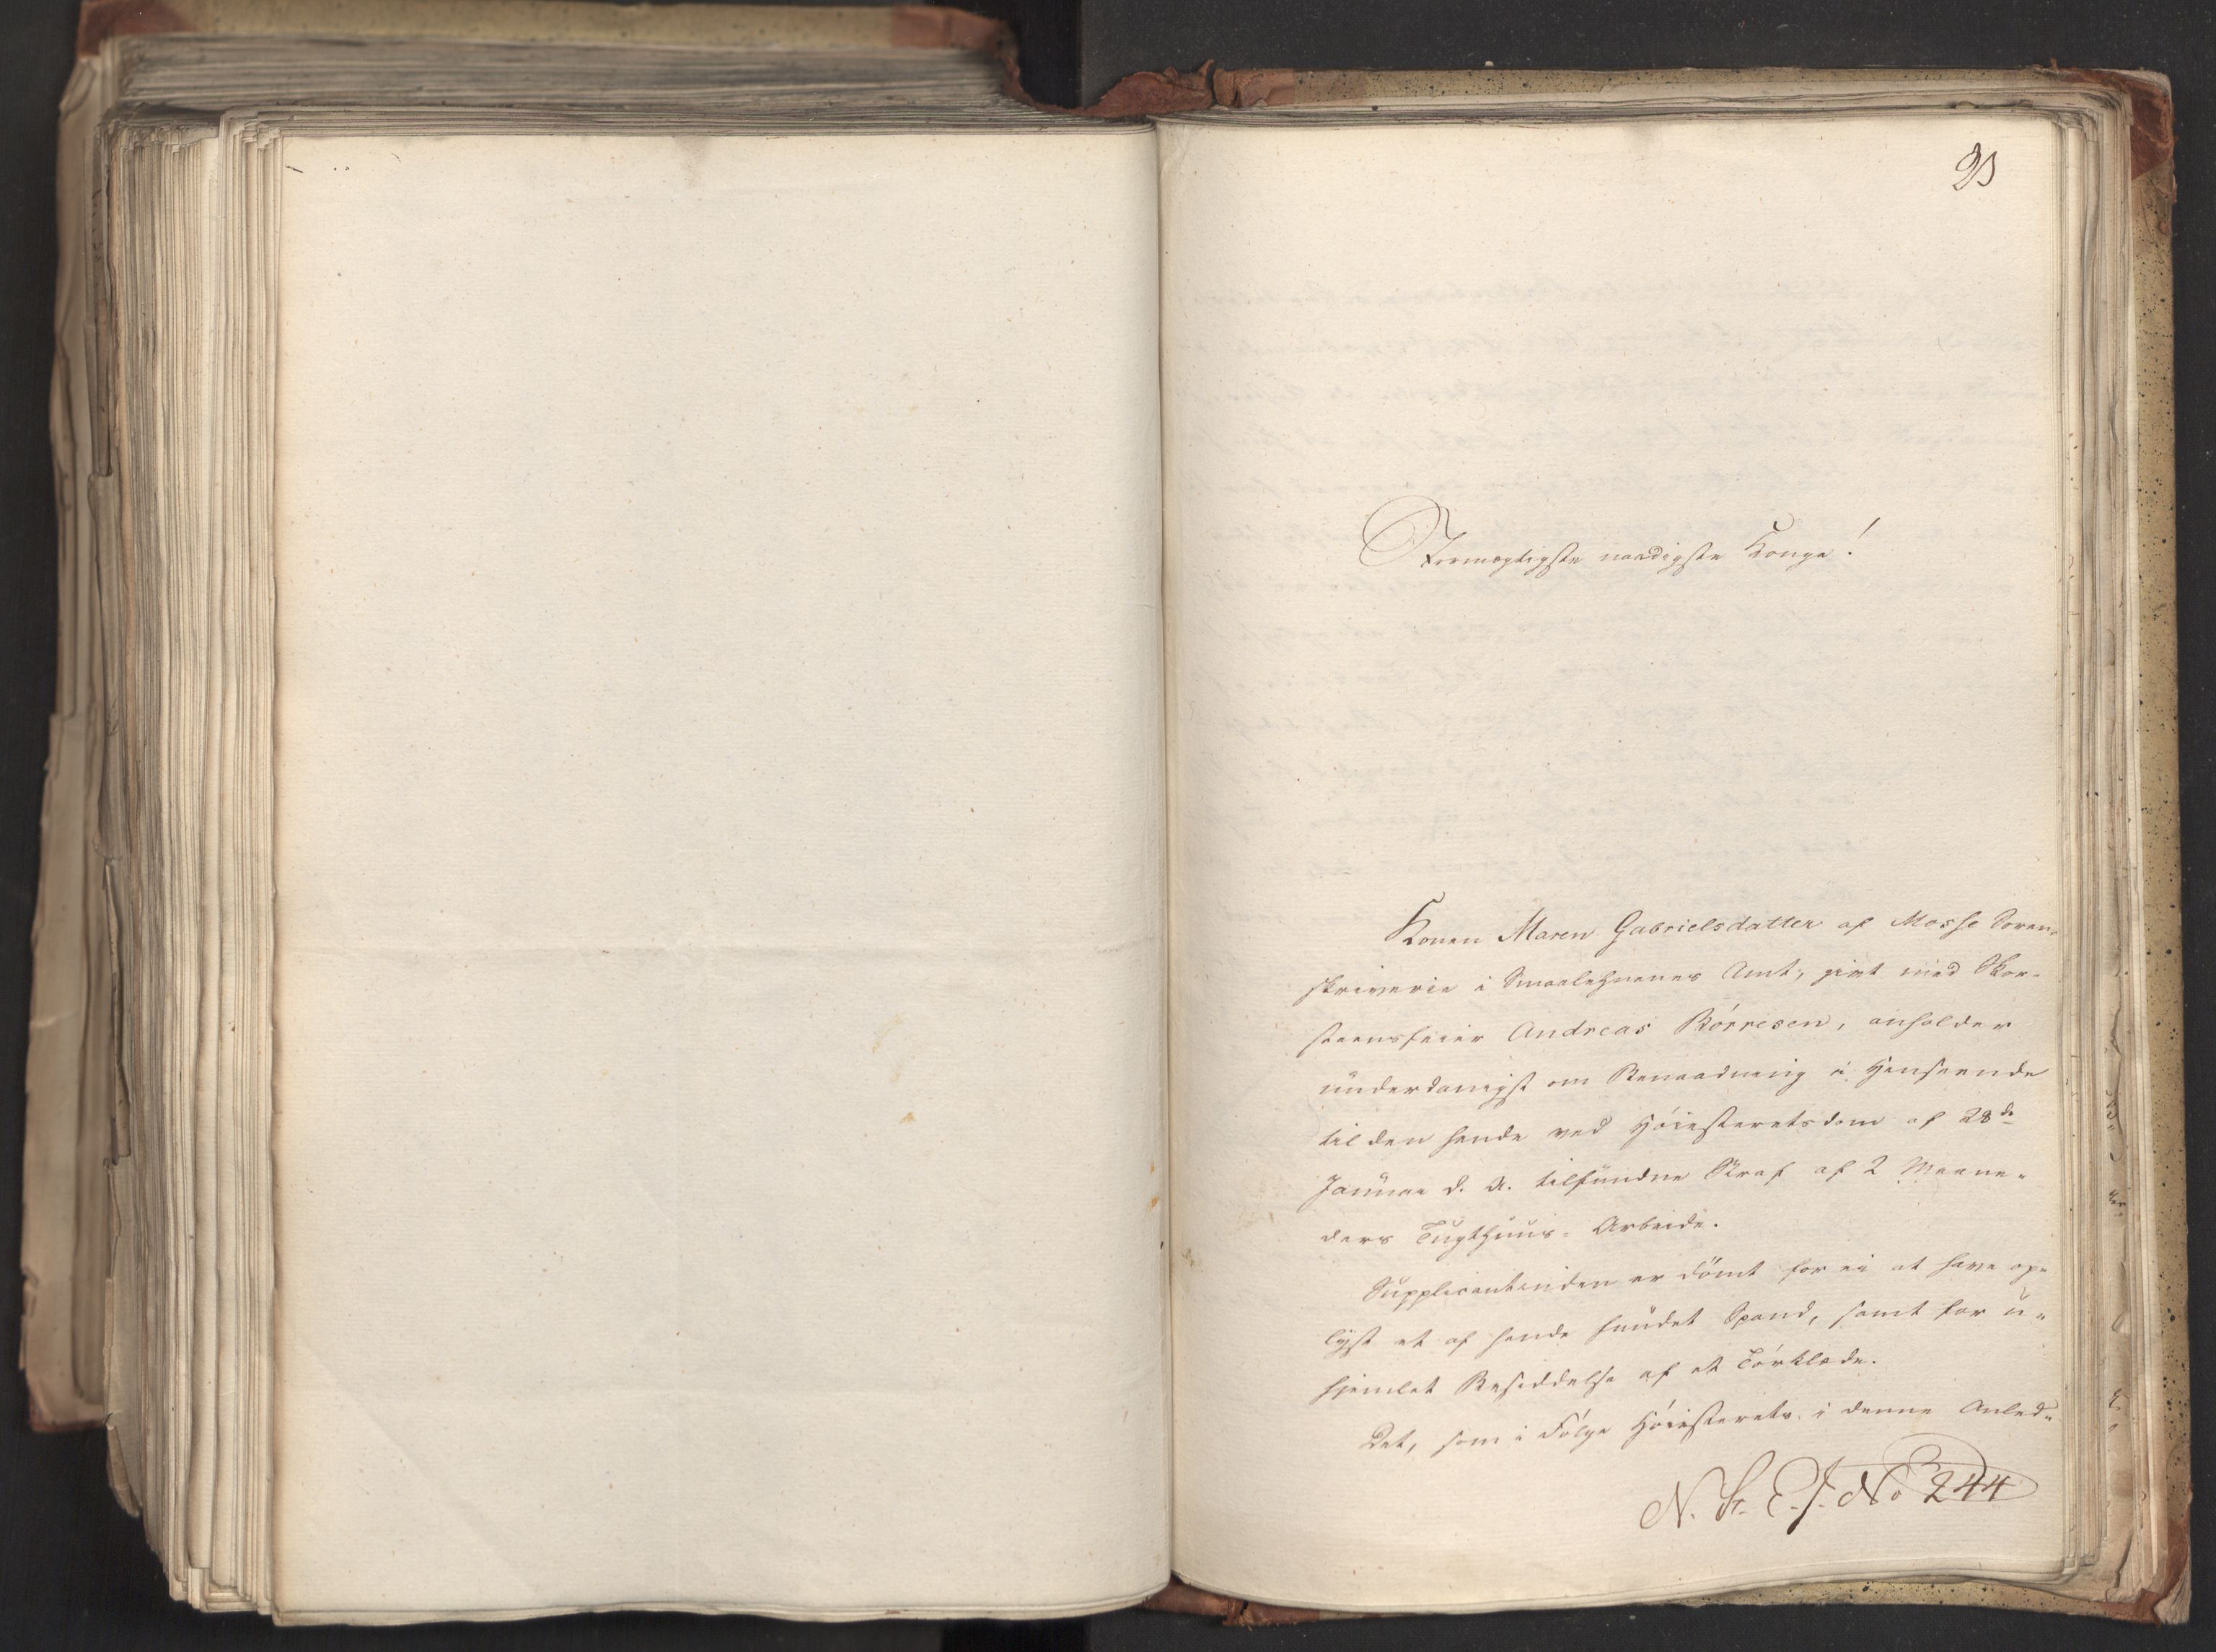 Stormægtigste naadigste Konge!
Konen Maren Gabrielsdatter af Mosse Soren-
skriverie i Smaalehnenes Amt, givt med Skor-
steensfeier Andreas Börresen, anholder
underdanigst om Benaadning i Henseende
til den hende ved Höiesteretsdom af 28de
Januar d. A. tilfundne Straf af 2 Maane-
ders Tugthuus-Arbeide.
Supplicantinden er dömt for ei at have op-
lyst et af hende fundet Spand, samt for u-
hjemlet Besiddelse af et Törklæde.
Det, som i Fölge Höiesterets i denne Anled-
N. St. E. J. No 244